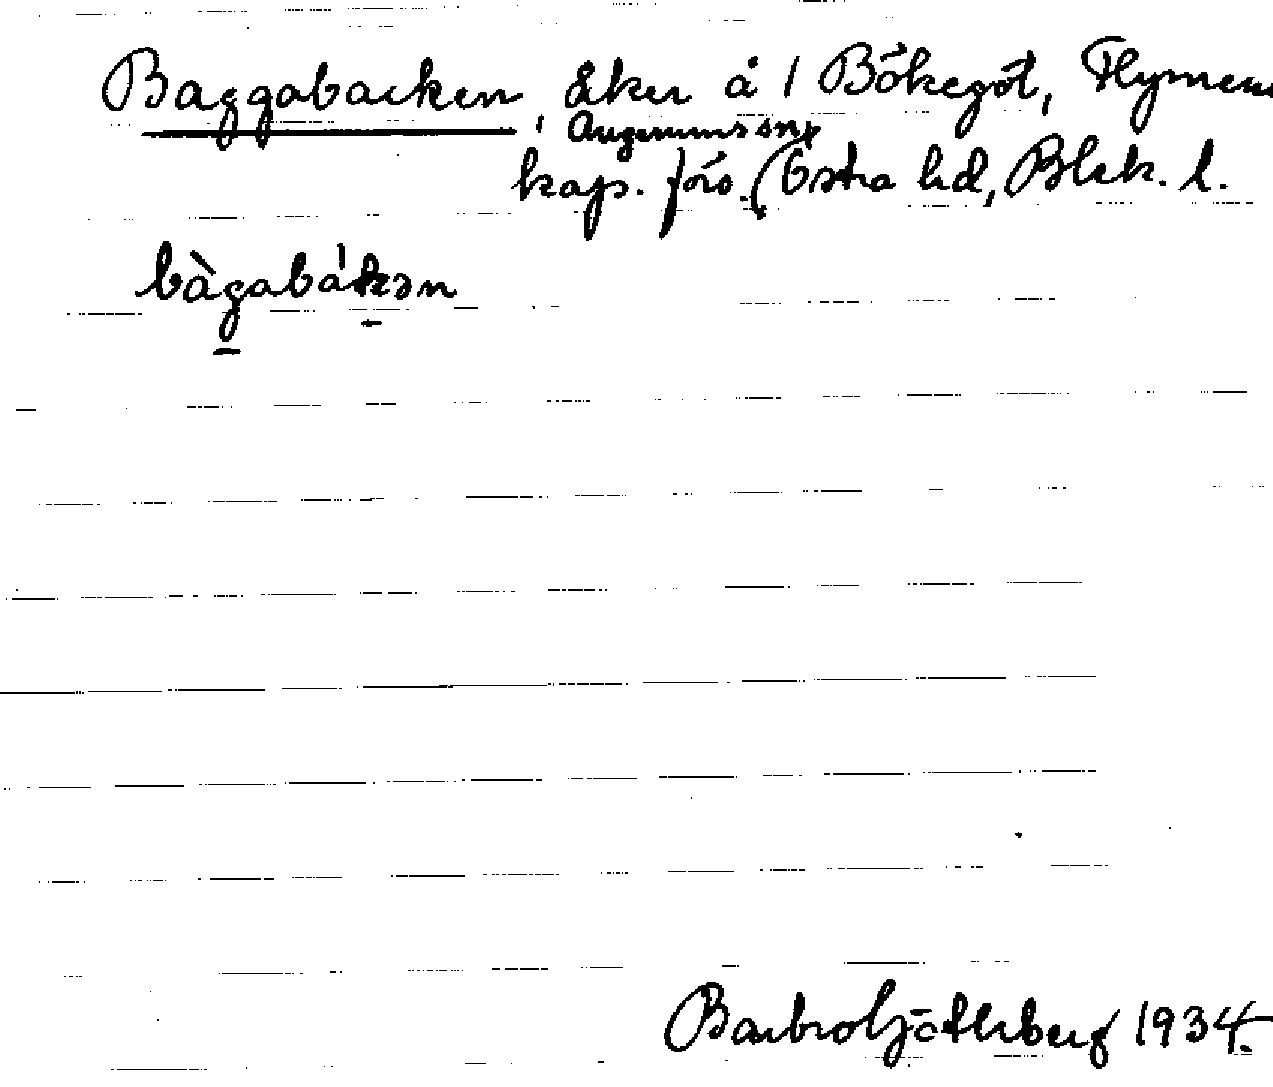 Baggabacken, åker å 1 Bökegöl, Flymens
Augerums sn
kap. förs. (Östra hd, Blek. l.
bàgabákən
Barbro 1934.